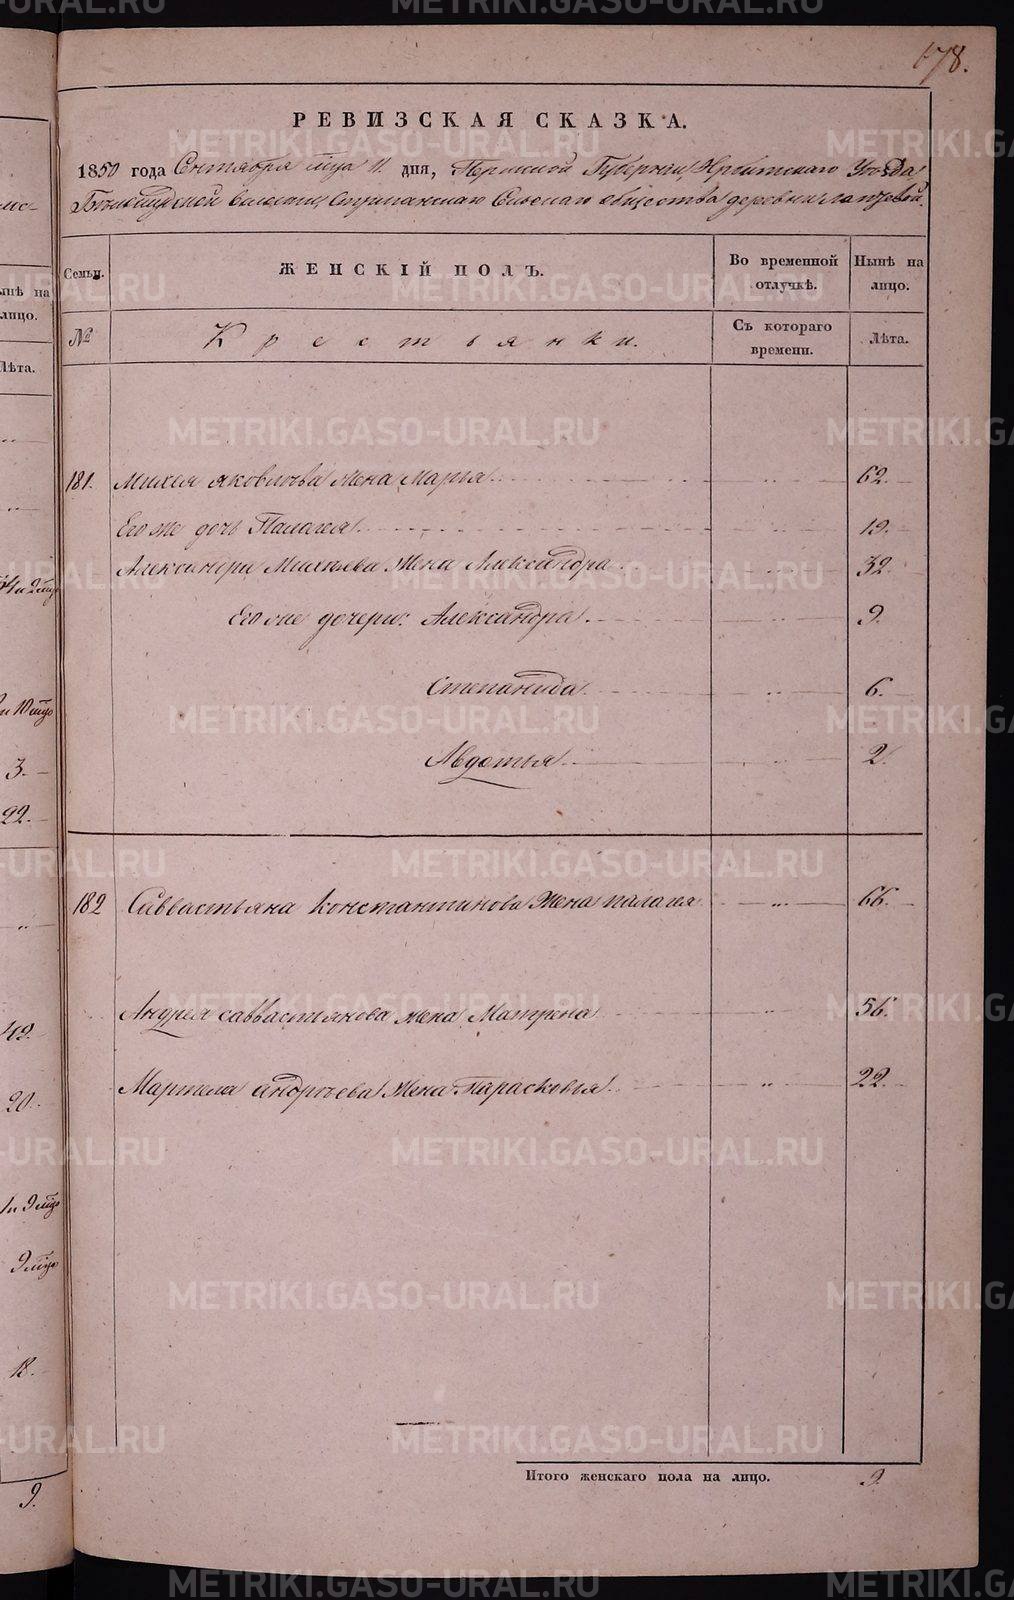 178.
РЕВИЗСКАЯ СКАЗКА.
1850 года Сентября мца 11. дня, Пермской Губерніи, Ирбитскаго Уѣзда
волости, Стриганскаго Сельскаго общества деревни Лаптевой.
Семьи. ЖЕНСКІЙ ПОЛЪ. Во временной отлучкѣ. Нынѣ на лицо.
№ Крестьянки. Съ котораго времени. Лѣта.
181. Михея Яковлева жена Марья 62.
Его же дочь Палагея 19.
Александры Михеява Жена Александра 32.
Его же дочери: Александра 9.
Степанида 6.
Авдотья 2.
182 Саввастьяна Константинова Жена Палагея 66.
Андрея Саввастьянова жена Матрена 56.
Андреева Жена Парасковья 22.
Итого женскаго пола на лицо. 9.
нынѣ на
лицо.
Лѣта.
3.
22.
49.
20.
18.
9.
METRIKI.GASO-URAL.RU